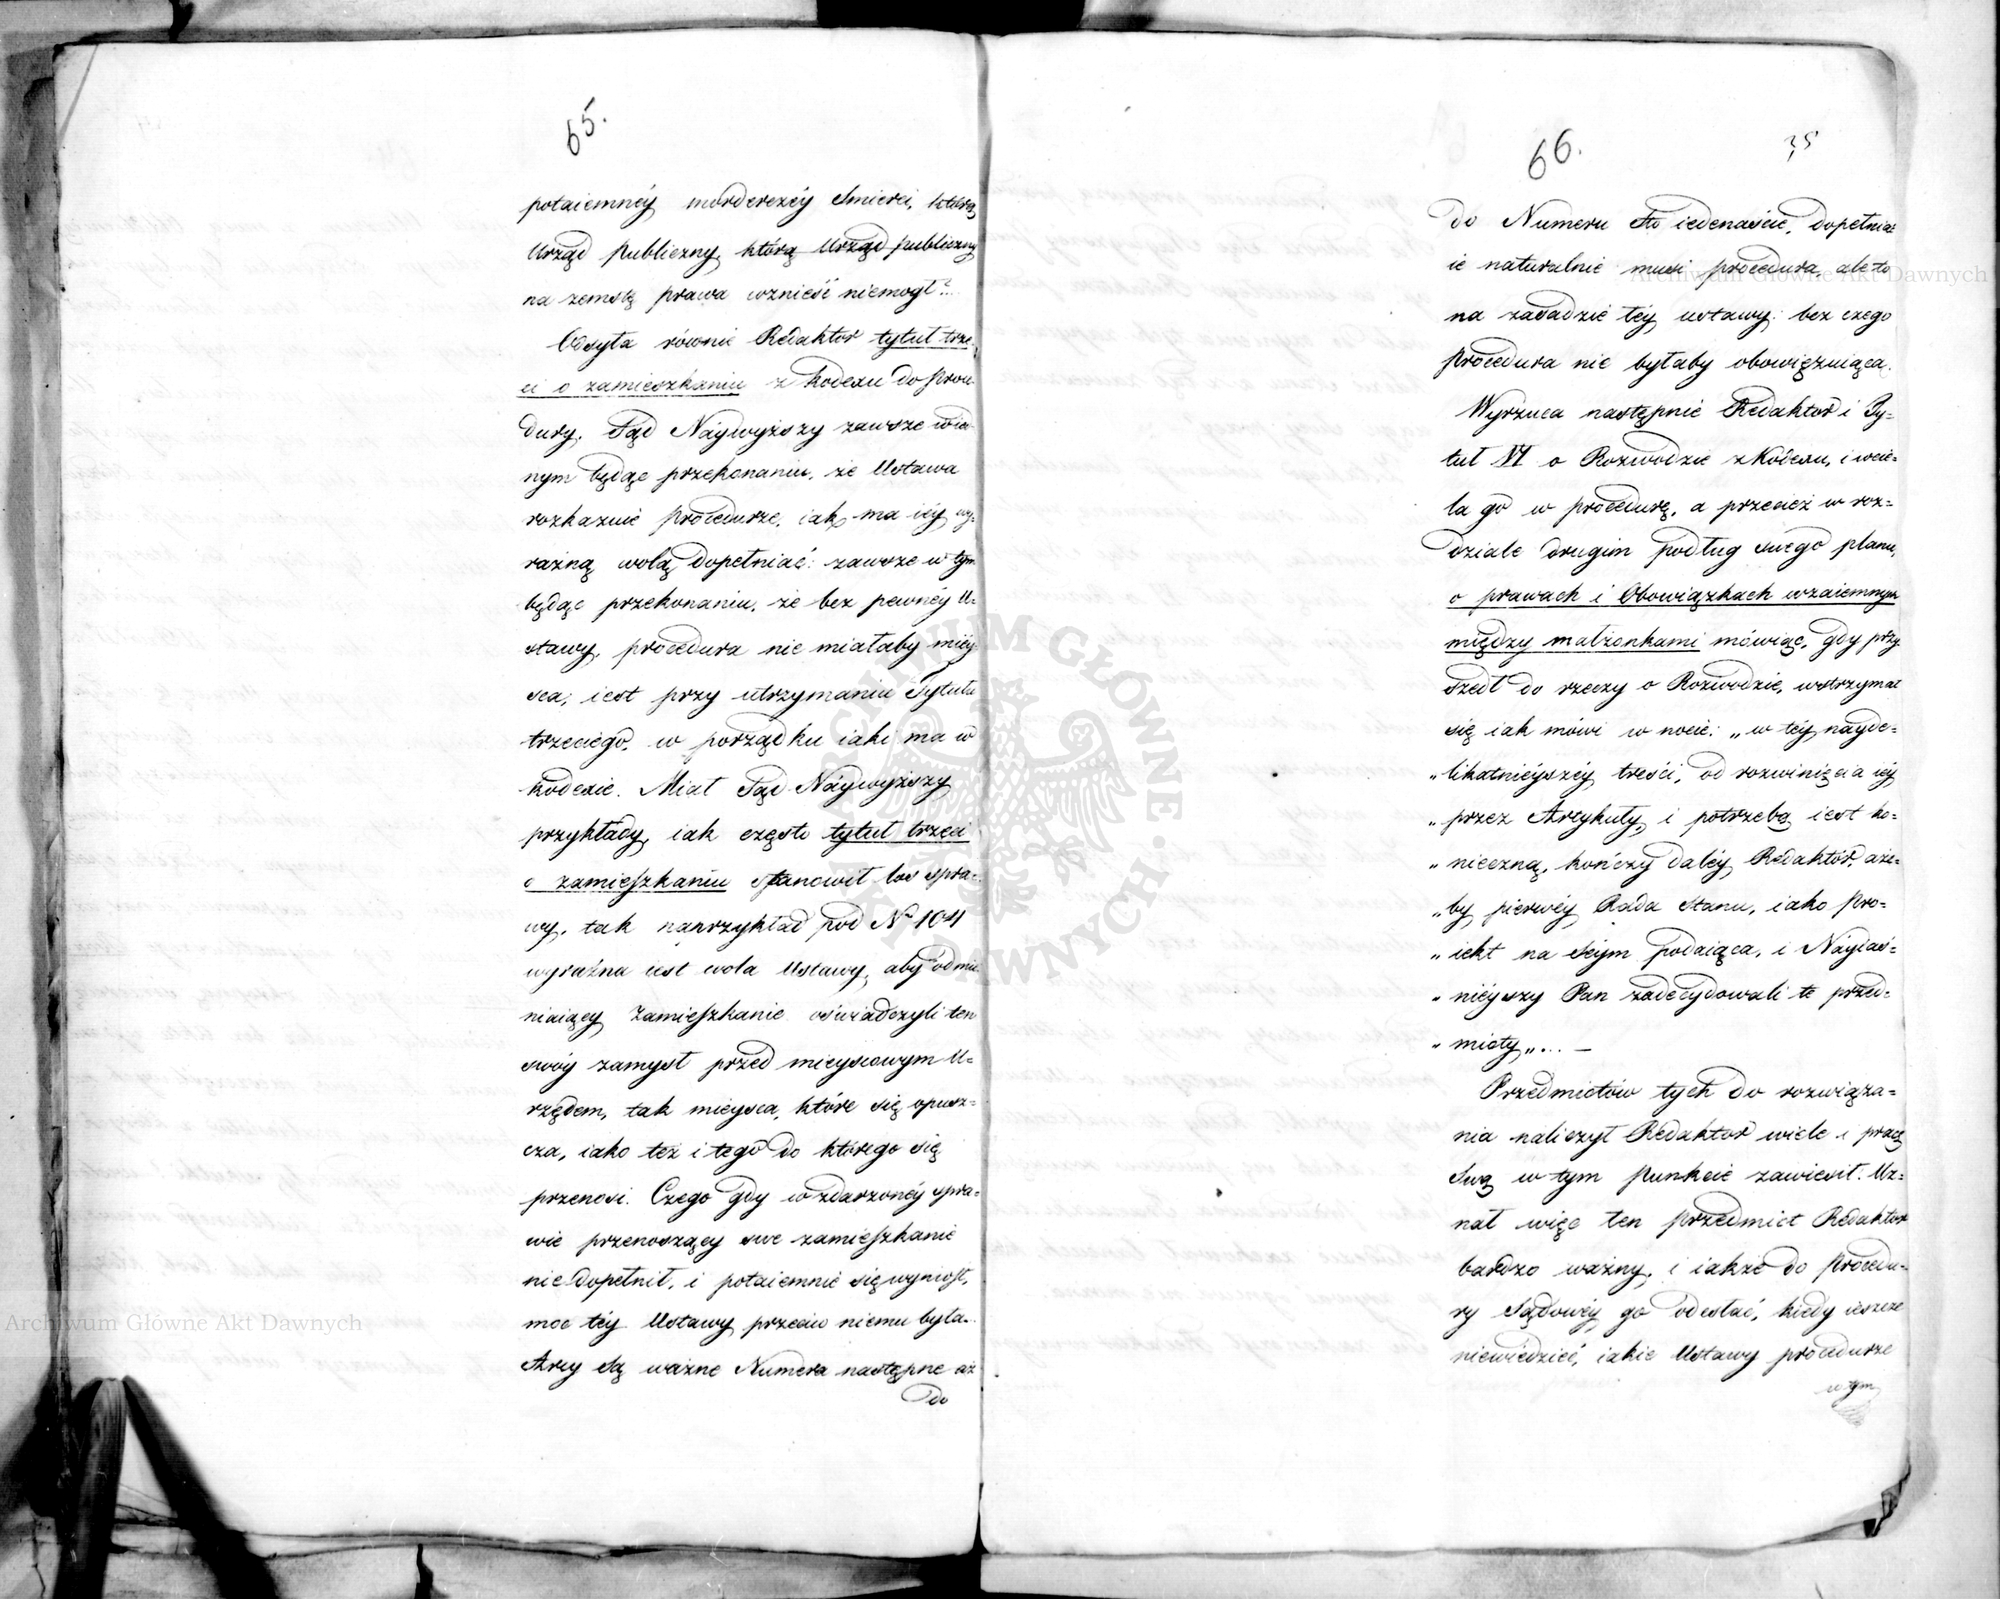 65.
potaiemnéy morderczéy Smierci, którą
Urząd Publiczny, którą Urząd publiczny
na zemstę prawa wznieść niemogł?...
Odsyła równie Redaktor tytuł trze-
ci o zamieszkaniu z Kodexu do Proce-
dury. Sąd Náywyższy zawsze w ie-
nym będąc przekonaniu, że Ustawa
rozkazuie Procedurze, iak ma iéy wy-
raźną wolą dopełniać: zawsze w tym
będąc przekonaniu, że bez pewnéy U-
stawy, procedura nie miałaby miéy-
sca; iest przy utrzymaniu Tytułu
trzeciego, w porządku iaki ma w
Kodexie. Miał Sąd Náywyższy
przykłady, iak często tytuł trzeci
o zamieszkaniu stanowił los spra-
wy, tak naprzykład pod No 104
wyraźna iest wola Ustawy, aby odmie-
niaiący zamieszkanie oświadczyli ten
swóy zamysł przed mieyscowym U-
rzędem, tak mieysca, które się opusz-
cza, iako też i tego do którego się
przenosi. Czego gdy w zdarzonéy spra-
wie przenoszący swe zamieszkanie
nie dopełnił, i potaiemnie się wyniosł,
moc téy Ustawy przeciw niemu była.
Arcy są ważne Numera następne aż
do
66.
35
do Numeru sto iedenaście, dopełniać
ie naturalnie musi procedura, ale to
na zasadzie téy ustawy: bez czego
procedura nie byłaby obowięzuiącą.
Wyrzuca następnie Redaktor i Ty=
tuł VI o Rozwodzie z Kodexu, i wcie=
la go w procedurę, a przecież w roz=
dziale drugim podług swego planu,
o prawach i Obowiązkach wzaiemnych
między małżonkami mówiąc, gdy przy-
szedł do rzeczy o Rozwodzie, wstrzymał
się iak mówi w nocie: „w téy nayde=
„likatnieyszéy treści, od rozwinięcia iéy
„przez Artykuły, i potrzebą iest ko=
„nieczną, kończy daléy Redaktor, aże=
„by pierwéy Rada Stanu, iako Pro=
„iekt na Séym podaiąca, i Náyiaś=
„niéyszy Pan zadecydowali te przed=
„mioty„... —
Przedmiotów tych do rozwiąza=
nia naliczył Redaktor wiele i pracę
Swą w tym punkcie zawiesił. Uz=
nał więc ten przedmiot Redaktor
bardzo ważny, i iakże do Procedu-
ry Sądowéy go odesłać, kiedy ieszcze
niewiedzieć, iakie Ustawy procedurze
w tym
Archiwum Główne Akt Dawnych
Archiwum Główne Akt Dawnych
ARCHIWUM GŁÓWNE AKT DAWNYCH